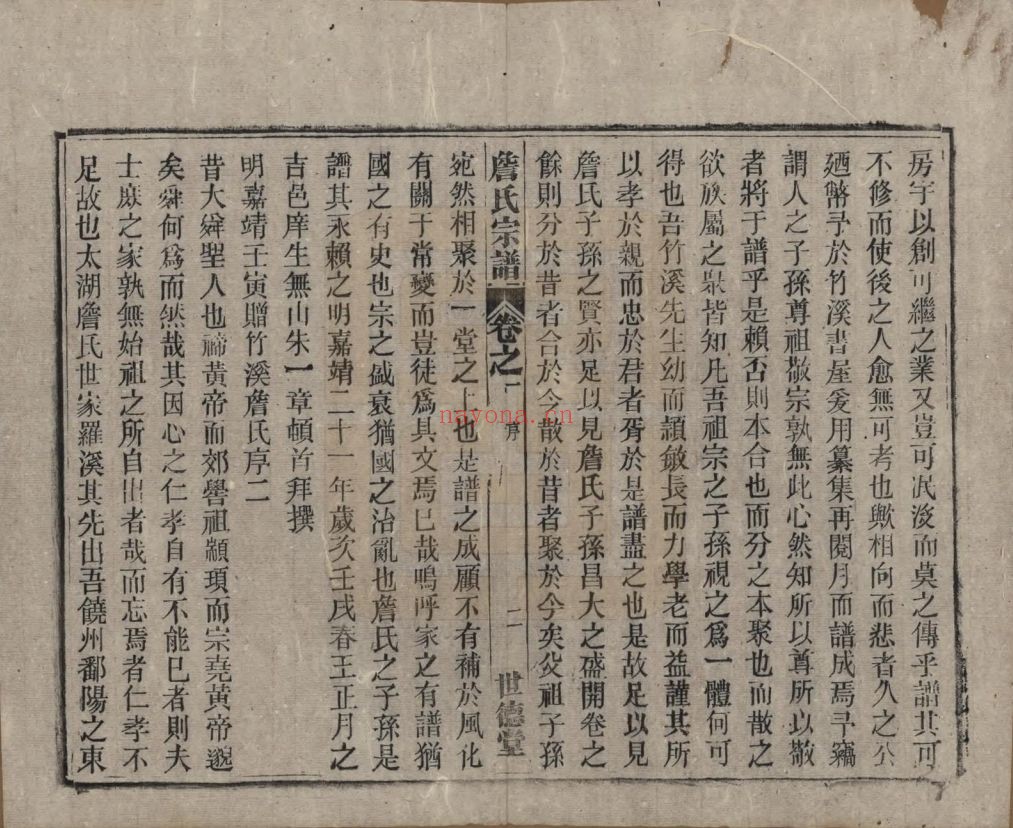 房宇以創可繼之業又豈可泯沒而莫之傳乎譜其可
不修而使後之人愈無可考也歟相向而悲者久之公
廼幣予於竹溪書屋爰用纂集再閱月而譜成焉予竊
謂人之子孫尊祖敬宗孰無此心然知所以尊所以敬
者將于譜乎是賴否則本合也而分之本聚也而散之
欲族屬之眾皆知凡吾祖宗之子孫視之爲一體何可
得也吾竹溪先生幼而穎敏長而力學老而益謹其所
以孝於親而忠於君者胥於是譜盡之也是故足以見
詹氏子孫之賢亦足以見詹氏子孫昌大之盛開卷之
餘則分於昔者合於今散於昔者聚於今矣父祖子孫
詹氏宗譜 卷之一 序 二 世德堂
宛然相聚於一堂之上也是譜之成顧不有補於風化
有關于常變而豈徒爲具文焉已哉嗚呼家之有譜猶
國之有史也宗之盛衰猶國之治亂也詹氏之子孫是
譜其永賴之明嘉靖二十一年歲次壬戌春王正月之
吉邑庠生無山朱一章頓首拜撰
明嘉靖壬寅贈竹溪詹氏序二
昔大舜聖人也禘黃帝而郊嚳祖顓頊而宗堯黃帝邈
矣舜何爲而然哉其因心之仁孝自有不能已者則夫
士庶之家孰無始祖之所自出者哉而忘焉者仁孝不
足故也太湖詹氏世家羅溪其先出吾饒州鄱陽之東
nayona.cn